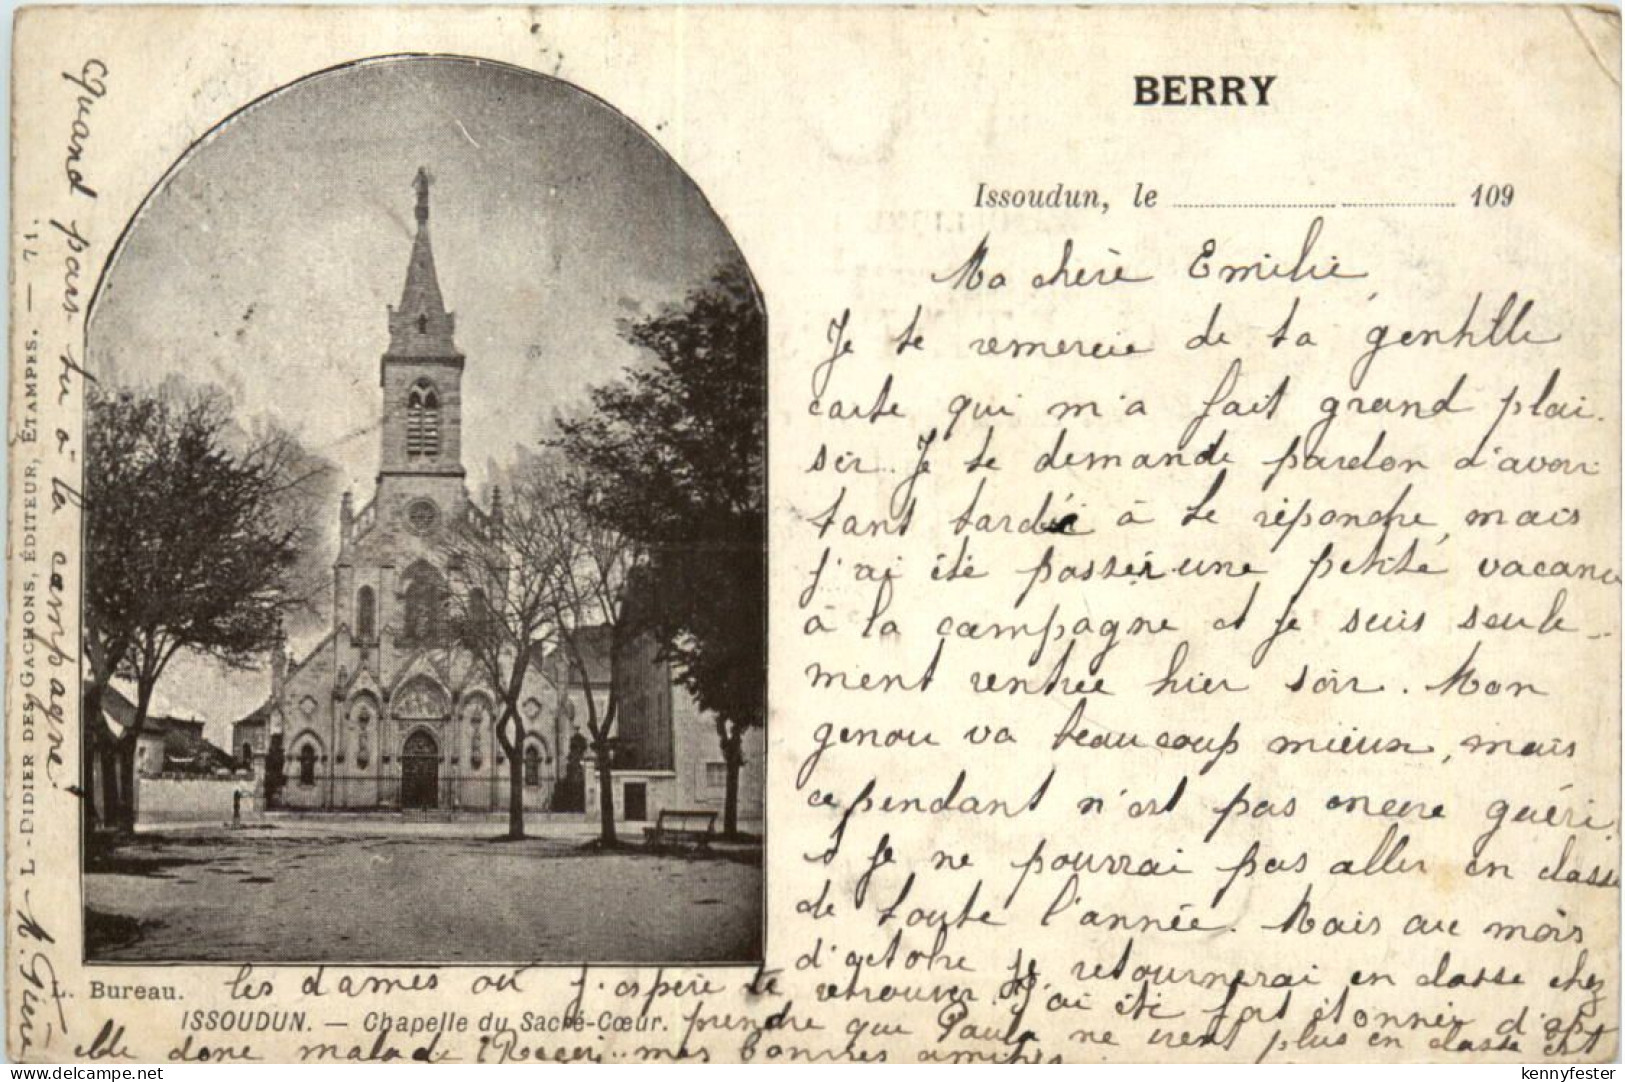 BERRY
Issoudun, le 109
Ma chère Emilie,
Je te remercie de ta gentille
carte qui m'a fait grand plai-
sir. Je te demande pardon d'avoir
tant tardé à te répondre, mais
j'ai été passer une petite vacance
à la campagne et je suis seule-
ment rentrée hier soir. Mon
genou va beaucoup mieux, mais
cependant n'est pas encore guéri
et je ne pourrai pas aller en classe
de toute l'année. Mais au mois
d'octobre je retournerai en classe chez
les dames où j'espère te retrouver. J'ai été fort étonnée d'ap
prendre que Paula ne vient plus en classe est
elle donc malade? mes bonnes amitiés
Quand pars-tu à la campagne?
L. DIDIER DES GACHONS, ÉDITEUR, ÉTAMPES. — 71.
L. Bureau.
ISSOUDUN. — Chapelle du Sacré-Cœur.
www.delcampe.net
kennyfester